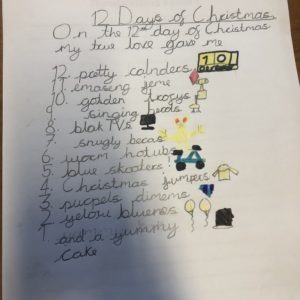 12 Days of Christmas
On the 12th day of Christmas
My true love gave me
12. pretty calnders
11. emasing jeme
10. golden
9. singing berds
8. blak TVs
7. snugly beras
6. worm hotubs
5. blue skooters
4. Christmas jumpers
3. purpels dimems
2. yelow bluenos
1. and a yummy
cake